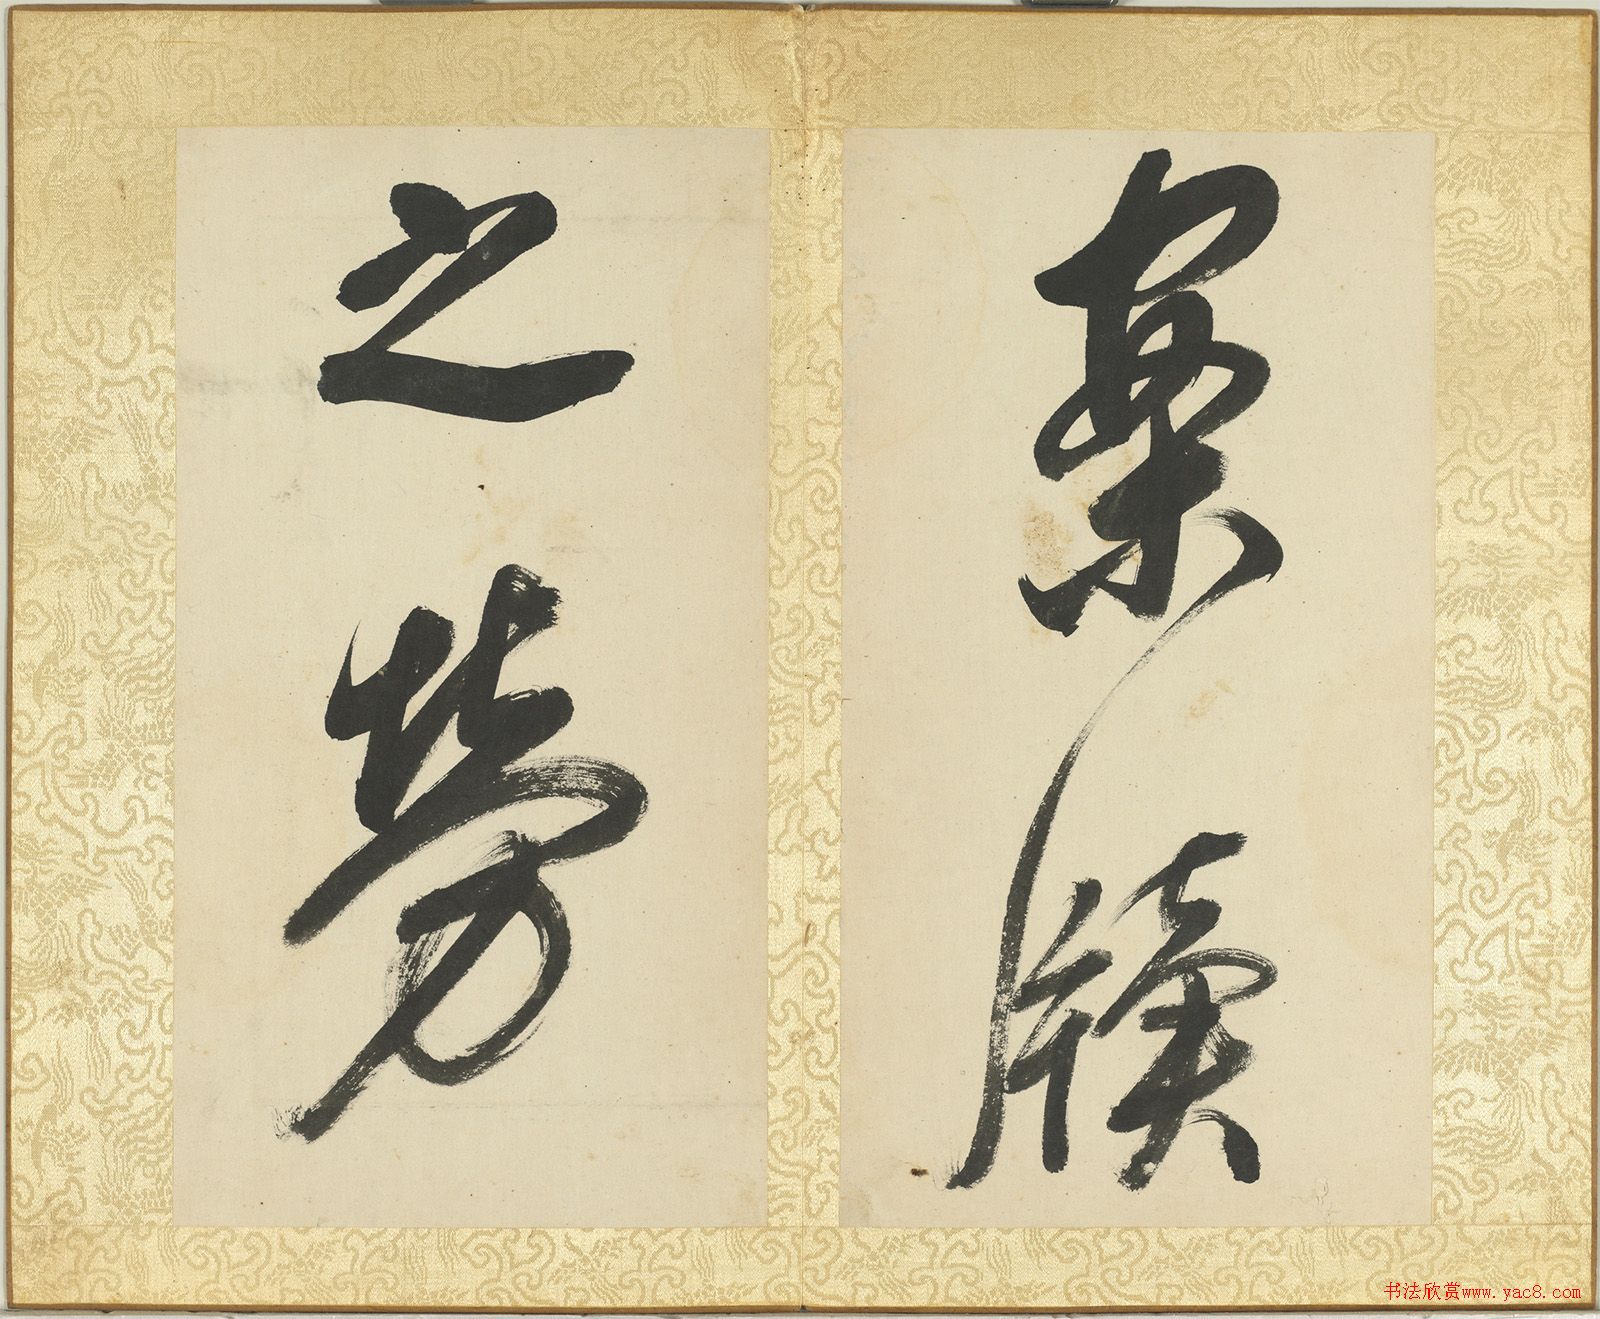 案牘
之勞
书法欣赏www.yac8.com